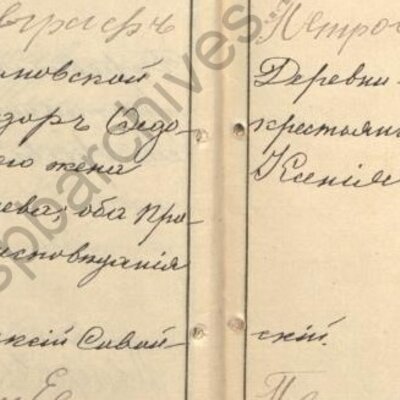 вграфъ
новской
доръ Ѳедо-
его жена
ева, оба пра-
исповѣданія
ксій Савой-
Петро
Деревни
крестьян
Ксенія
скій.
spbarchives